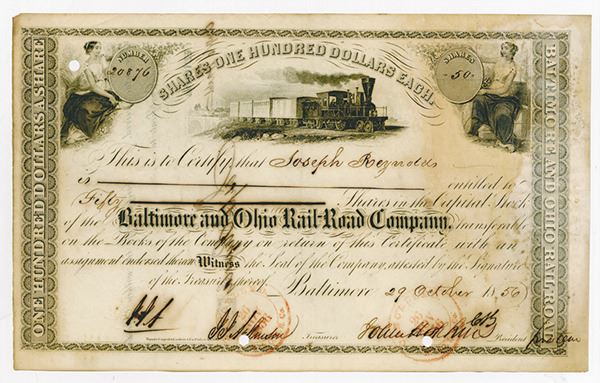 NUMBER
20876
SHARES ONE HUNDRED DOLLARS EACH.
SHARES
-50-
ONE HUNDRED DOLLARS A SHARE
BALTIMORE AND OHIO RAIL-ROAD
This is to Certify that Joseph Reynolds
is entitled to
Fifty Shares in the Capital Stock
of the Baltimore and Ohio Rail-Road Company, transferable
on the Books of the Company on return of this Certificate with an
assignment endorsed thereon Witness the Seal of the Company, attested by the Signature
of the Treasurer thereof Baltimore 29 October 1856
Treasurer
President pro tem